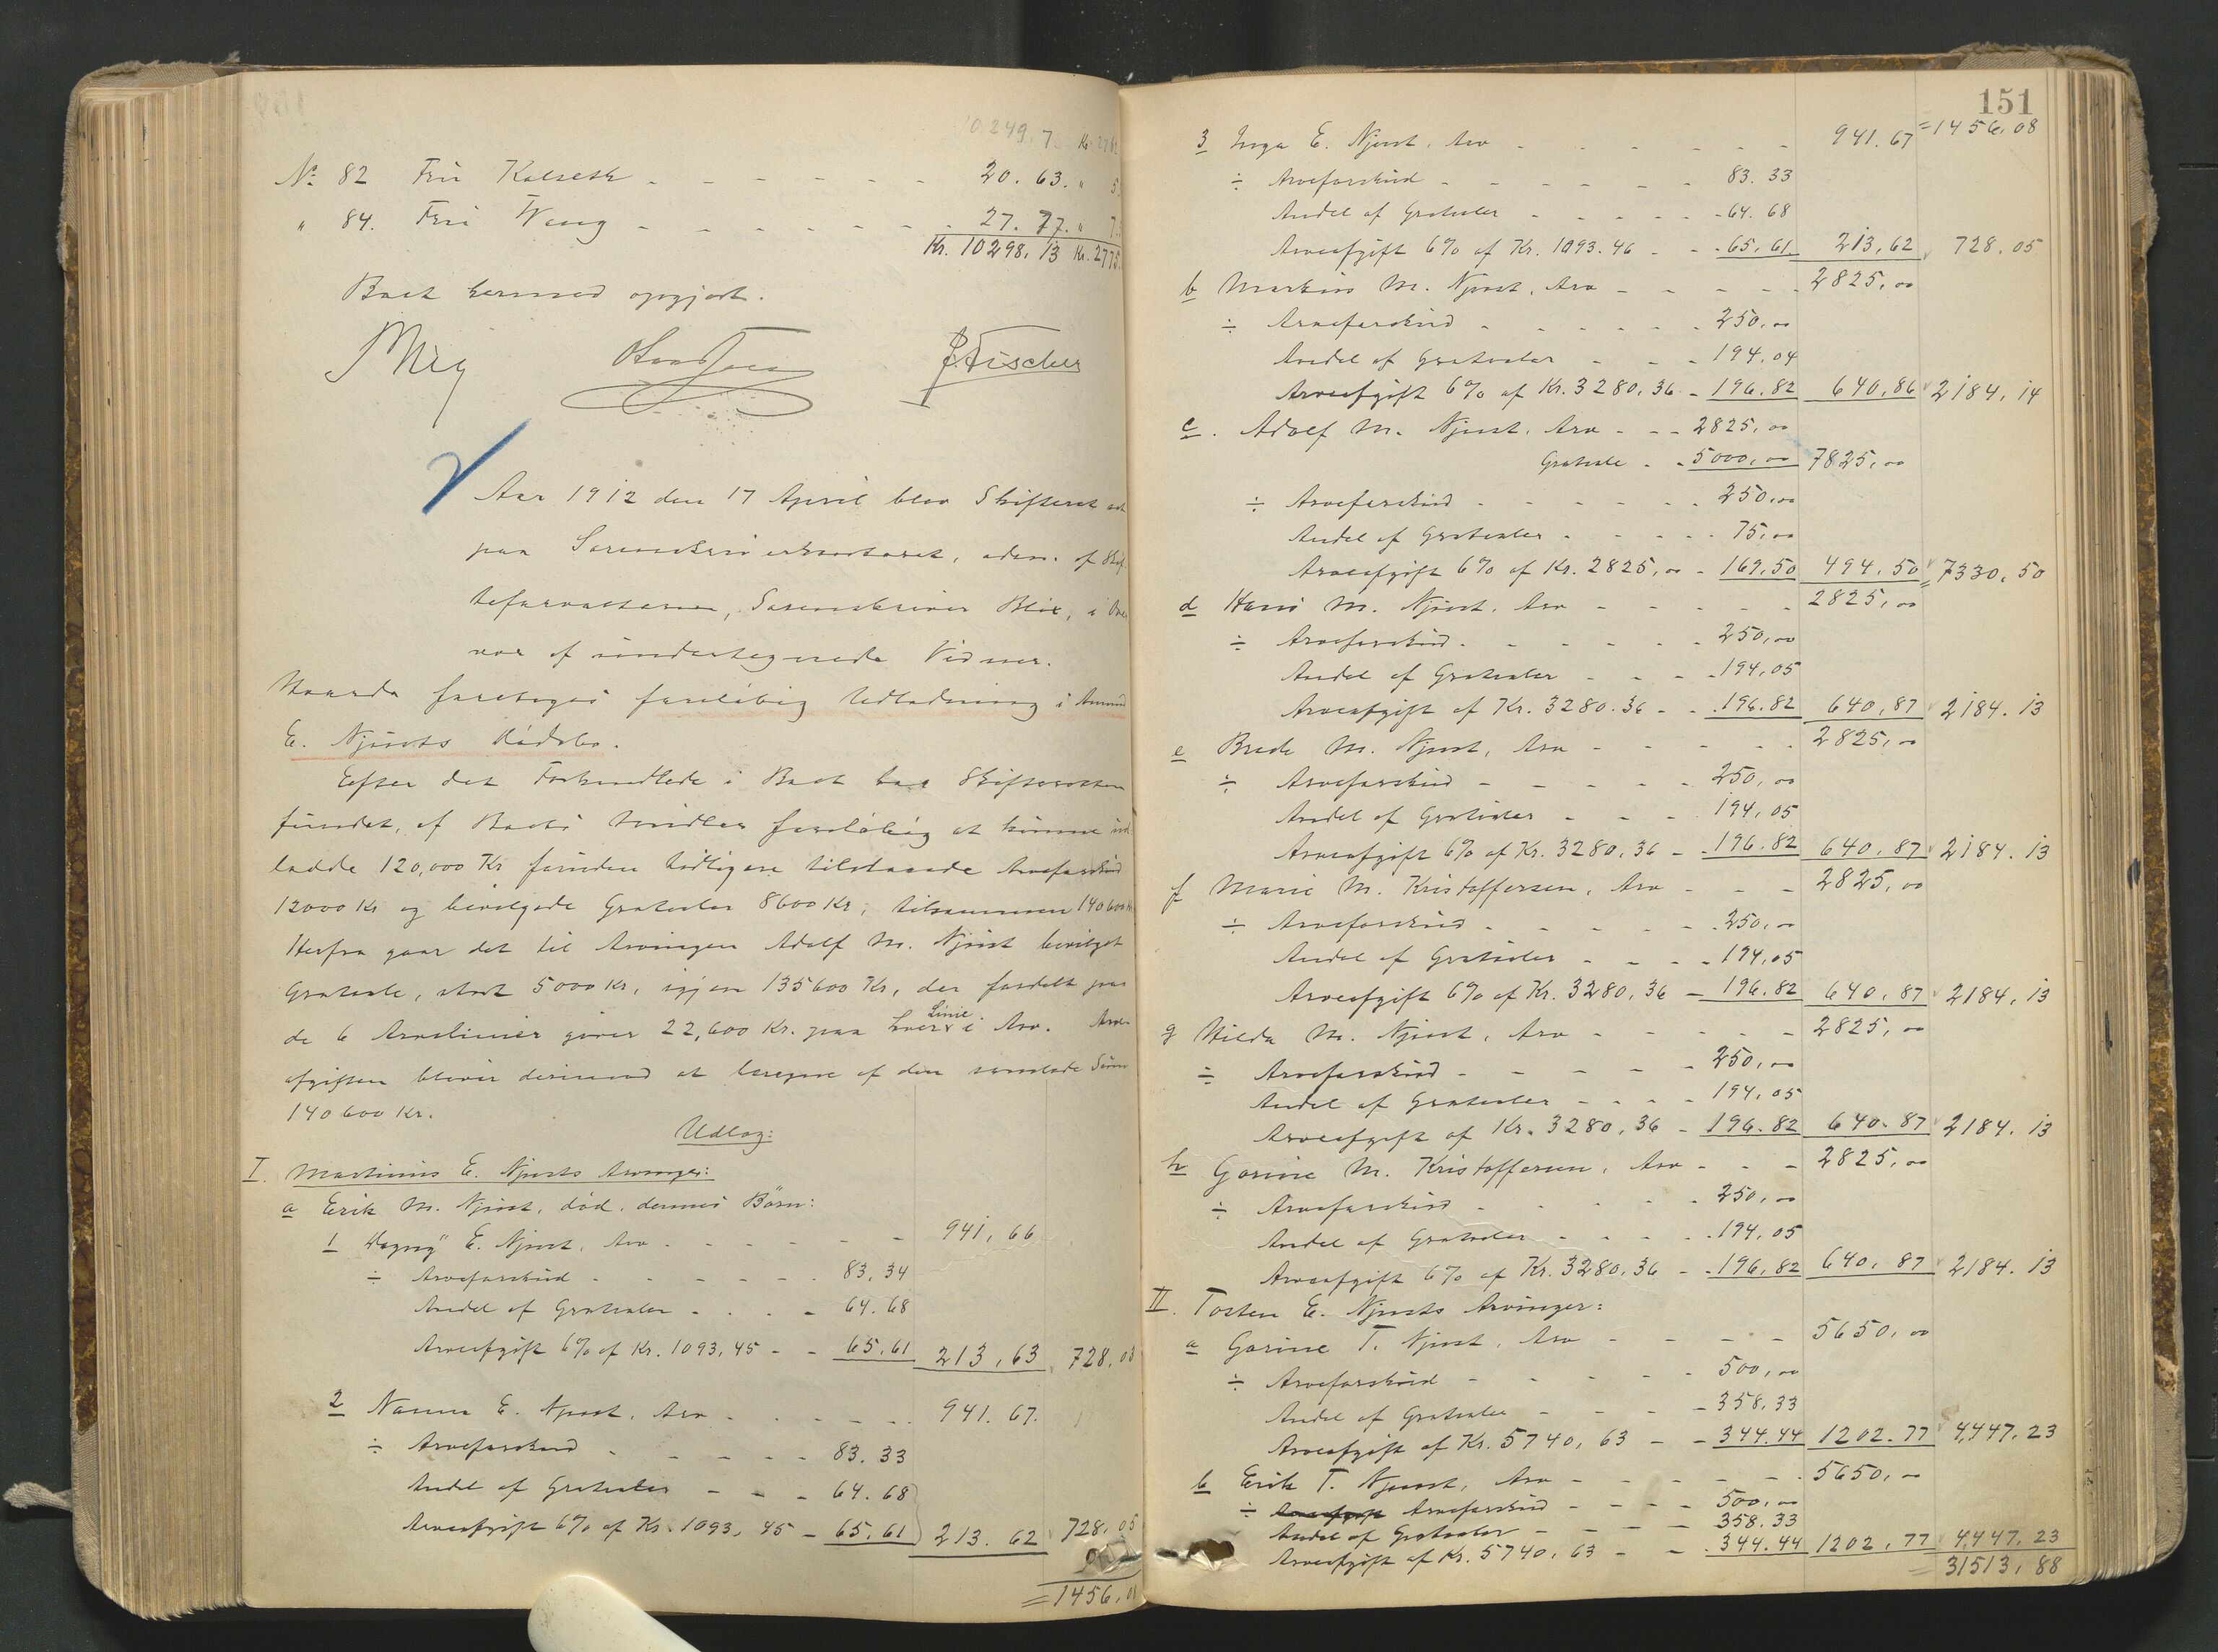 10249.7 Kr. 27
No 82 Fru Kolseth - - - - - - - 20. 63. " 5
" 84. Fru Wang - - - - - - - 27. 77. " 7.
Kr. 10298,13 Kr. 2775
Boet hermed opgjort.
Blix Fischer
Aar 1912 den 17 April blev Skifteret
paa Sorenskriverkontoret, adm. af Skif-
teforvalteren, Sorenskriver Blix, i Over
vær af undertegnede Vidner.
Skulde foretages foreløbig Udlodning i Amund
E. Njusts Dødsbo.
Efter det Forhandlede i Boet har Skifteretten
fundet, af Boets Midler foreløbig at kunne ud
lodde 120,000 Kr foruden tidligere tilstaaede Arveforskud
12000 Kr og bevilgede Gratialer 8600 Kr, tilsammen 140600 Kr
Herfra gaar det til Arvingen Adolf M. Njust bevilget
Gratiale, stort 5000 Kr, igjen 135600 Kr, der fordelt paa
de 6 Arvelinier giver 22,600 Kr. paa hver Linie i Arv. Arve-
afgiften bliver derimod at beregne af den samlede Sum
140600 Kr.
Udlæg:
I. Martinus E. Njusts Arvinger:
a Erik M. Njust, død, dennes Børn:
1 Dagny E. Njust, Arv - - - - - - 941,66
÷ Arveforskud - - - - - - 83,34
Andel af Gratialer - - - - 64.68
Arveafgift 6% af Kr. 1093,45 - - 65,61 213,63 728,03
2 Nanna E. Njust, Arv - - - - - - 941.67.
÷ Arveforskud - - - - - 83.33
Andel af Gratialer - - - 64.68
Arveafgift 6% af Kr. 1093,45 - 65,61 213.62 728,05
= 1456,08
151
3 Inga E. Njust, Arv - - - - - - 941.67 = 1456,08
÷ Arveforskud - - - - - - 83.33
Andel af Gratialer - - - - - 64.68
Arveafgift 6% af Kr. 1093.46 - - 65,61. 213,62 728.05
b Markus M. Njust, Arv - - - - - 2825,00
÷ Arveforskud - - - - - - 250,00
Andel af Gratialer - - - 194.04
Arveafgift 6% af Kr. 3280,36 - 196.82 640,86 2184,14
c. Adolf M. Njust, Arv - - - 2825,00
Gratiale - - 5000,00 7825,00
÷ Arveforskud - - - - - - 250,00
Andel af Gratialer - - - - - 75,00
Arveafgift 6% af Kr. 2825,00 - 169,50 494.50 = 7330,50
d Hans M. Njust, Arv - - - - - 2825,00
÷ Arveforskud - - - - - - 250,00
Andel af Gratialer - - - - 194,05
Arveafgift af Kr. 3280.36 - - 196.82 640,87 2184.13
e Brede M. Njust, Arv - - - - - 2825,00
÷ Arveforskud - - - - - 250,00
Andel af Gratialer - - - 194,05
Arveafgift 6% af Kr. 3280,36 - 196.82 640.87 2184.13
f Marie M. Kristoffersen, Arv - - - 2825,00
÷ Arveforskud - - - - - 250,00
Andel af Gratialer - - - - 194,05
Arveafgift 6% af Kr. 3280,36 - 196.82 640,87 2184,13
g Hilda M. Njust, Arv - - - - - 2825,00
÷ Arveforskud - - - - - 250,00
Andel af Gratialer - - - - 194,05
Arveafgift af Kr. 3280,36 - 196.82 640.87 2184.13
h Gorine M. Kristoffersen, Arv - - - 2825,00
÷ Arveforskud - - - - - 250,00
Andel af Gratialer - - - - 194,05
Arveafgift 6% af Kr. 3280,36 - - 196,82 640,87 2184.13
II. Tosten E. Njusts Arvinger:
a Gorine T. Njust, Arv - - - - - 5650,00
÷ Arveforskud - - - - - 500,00
Andel af Gratialer - - - - 358.33
Arveafgift af Kr. 5740,63 - - 344.44 1202.77 4,447.23
b Erik T. Njust, Arv - - - - - - 5650,00
÷ Arveafgift Arveforskud - - - - 500,00
Andel af Gratialer - - - - 358.33
Arveafgift af Kr. 5740,63 - - 344.44 1202,77 4,447.23
= 31513,88